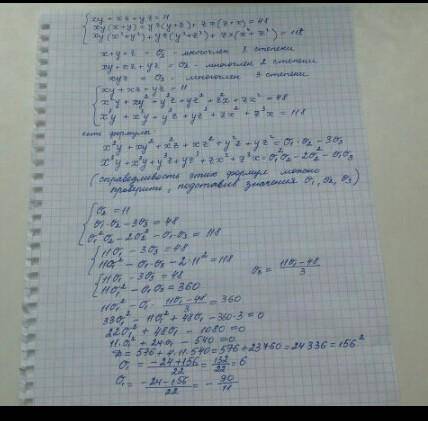 xy + xz + yz = 11
xy(x+y) + yz(y+z) + zx(z+x) = 48
xy(x²+y²) + yz(y²+z²) + zx(x²+z²) = 118
x+y+z = σ₁ - многочлен 1 степени
xy+xz+yz = σ₂ - многочлен 2 степени
xyz = σ₃ - многочлен 3 степени
xy + xz + yz = 11
x²y + xy² + y²z + yz² + z²x + zx² = 48
x³y + xy³ + y³z + yz³ + zx³ + z³x = 118
есть формулы
x²y + xy² + x²z + xz² + y²z + yz² = σ₁·σ₂ - 3σ₃
x³y + xy³ + y³z + yz³ + zx³ + z³x = σ₁²σ₂ - 2σ₂² - σ₁σ₃
(справедливость этих формул можно
проверить, подставив значения σ₁, σ₂, σ₃)
σ₂ = 11
σ₁·σ₂ - 3σ₃ = 48
σ₁²σ₂ - 2σ₂² - σ₁·σ₃ = 118
11σ₁ - 3σ₃ = 48
11σ₁² - σ₁·σ₃ - 2·11² = 118
11σ₁ - 3σ₃ = 48 σ₃ = (11σ₁-48)/3
11σ₁² - σ₁σ₃ = 360
11σ₁² - σ₁·(11σ₁-48)/3 = 360
33σ₁² - 11σ₁² + 48σ₁ - 360·3 = 0
22σ₁² + 48σ₁ - 1080 = 0
11σ₁² + 24σ₁ - 540 = 0
D = 576 + 4·11·540 = 576 + 23760 = 24336 = 156²
σ₁ = (-24+156)/22 = 132/22 = 6
σ₁ = (-24-156)/22 = -90/11